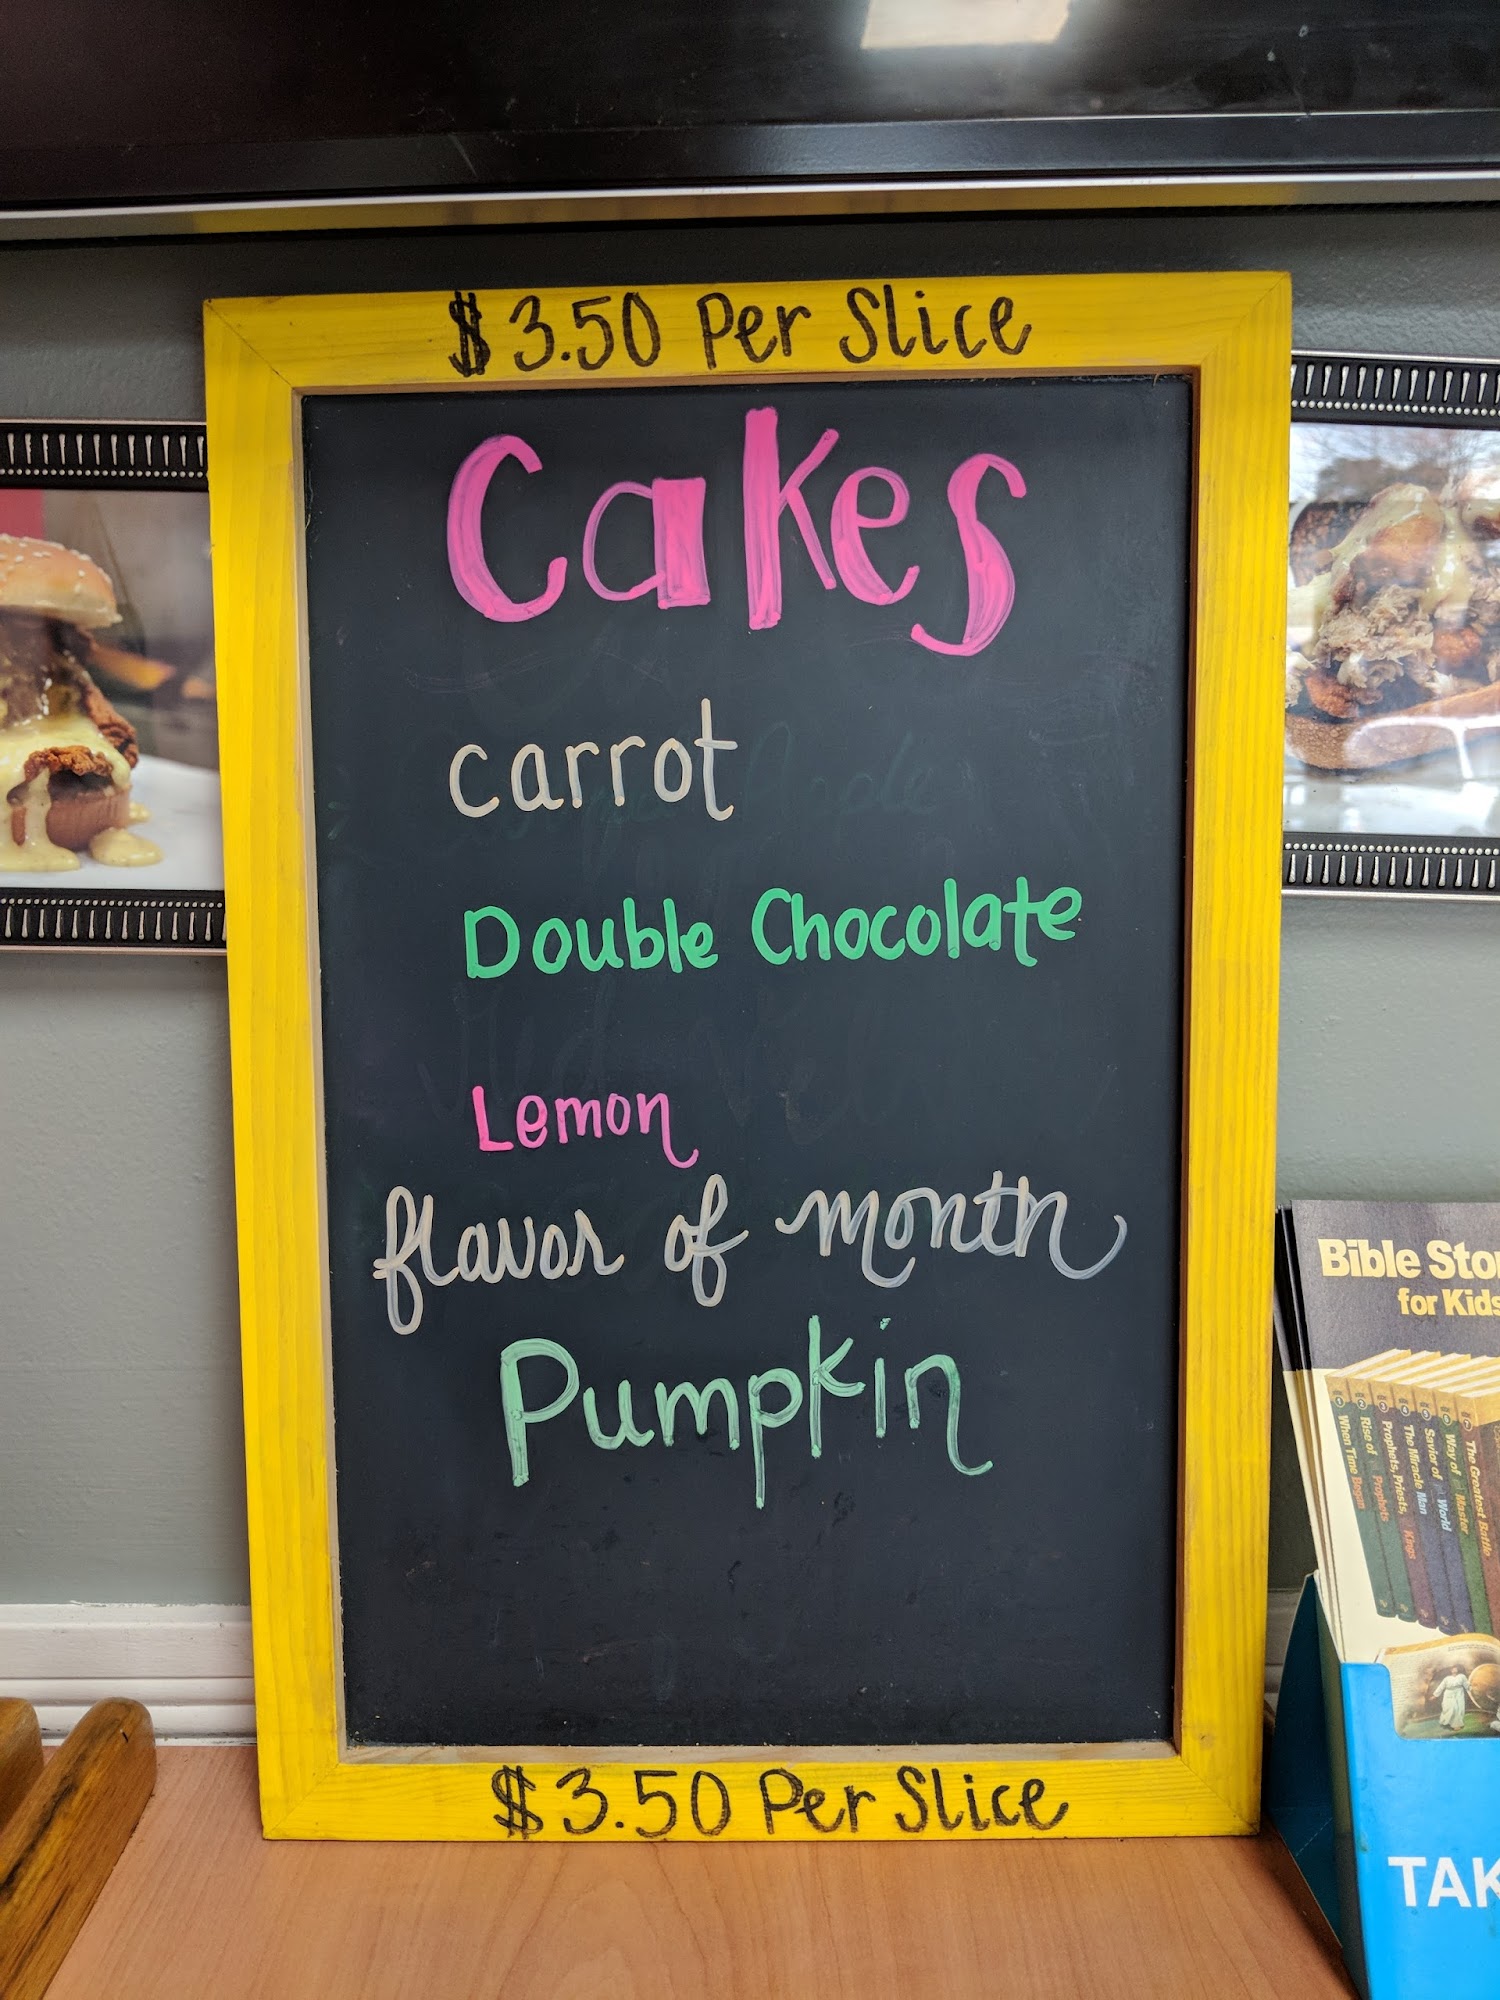 $3.50 Per Slice
Cakes
carrot
Double Chocolate
Lemon
flavor of month
Pumpkin
$3.50 Per Slice
Bible Sto
for Kids
1 When Time Began
2 Rise of Prophets
3 Prophets, Priests, Kings
4 The Miracle Man
5 Savior of World
6 Way of Master
7 The Greatest Battle
TAK